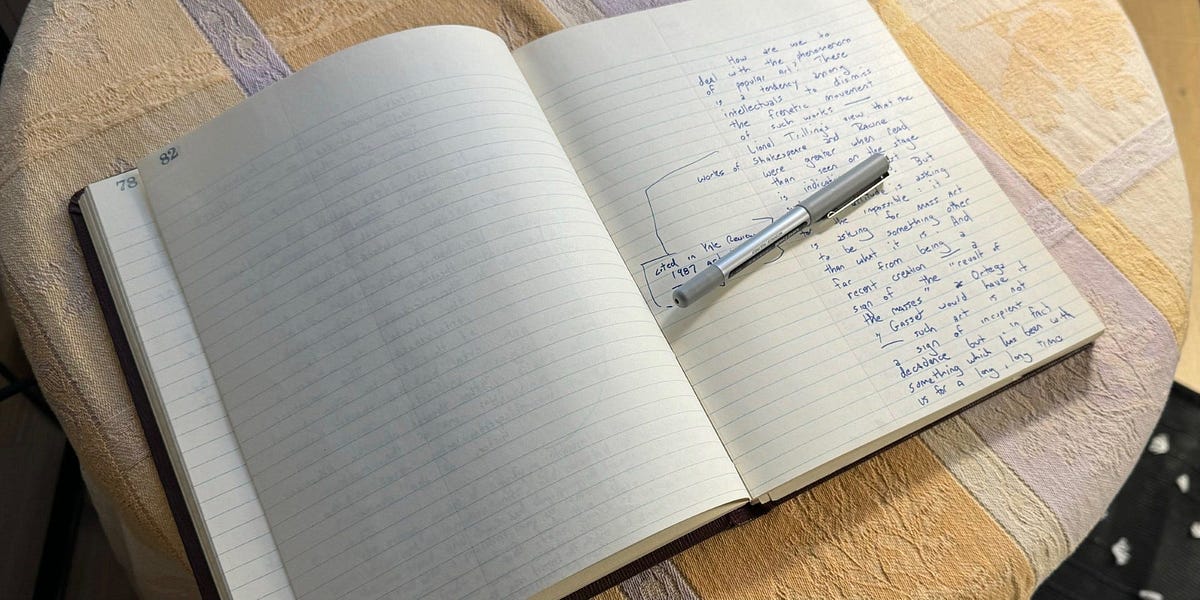 78
82
How are we to
deal with the phenomenon
of popular art? There
is a tendency among
intellectuals to dismiss
the frenetic movement
of such works
Lionel Trilling's view that the
works of Shakespeare and Racine
were greater when read
than seen on the stage
is But
is asking
the impossible: it
is asking for mass art
to be something other
than what it is. And
far from being a
recent creation a
sign of the "revolt of
the masses" as Ortega
y Gasset would have it
such art is not
a sign of incipient
decadence but in fact
something which has been with
us for a long, long time
cited in Yale Review
1987